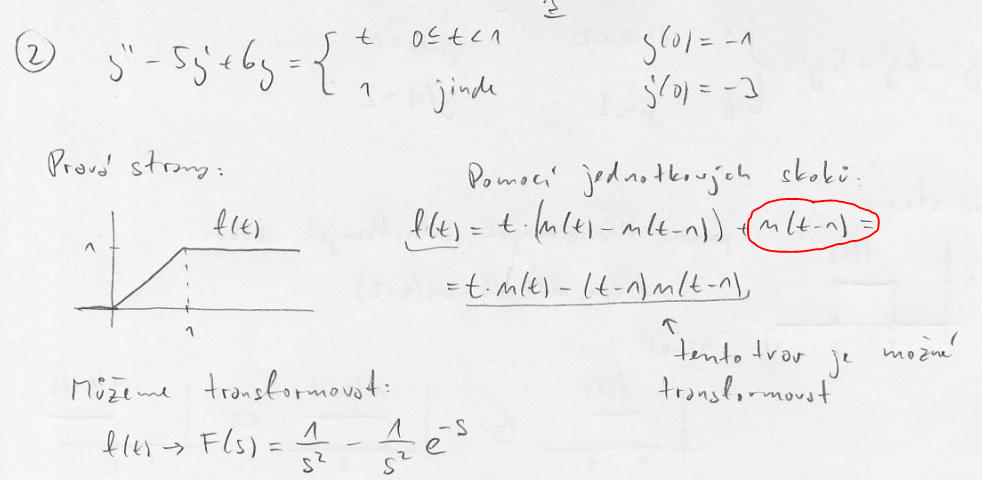 ② y'' - 5y' + 6y = { t 0 ≤ t < 1 y(0) = -1
1 jinde y'(0) = -3
Pravá strana:
Pomocí jednotkových skoků:
f(t)
1
1
f(t) = t·(u(t) - u(t-1)) + u(t-1) =
= t·u(t) - (t-1)u(t-1)
↑
tento tvar je možné
transformovat
Můžeme transformovat:
f(t) → F(s) = 1/s² - 1/s² e^-s